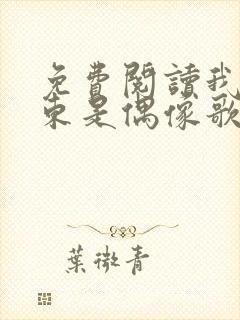 免費閱讀我
東是偶像歌
葉微青